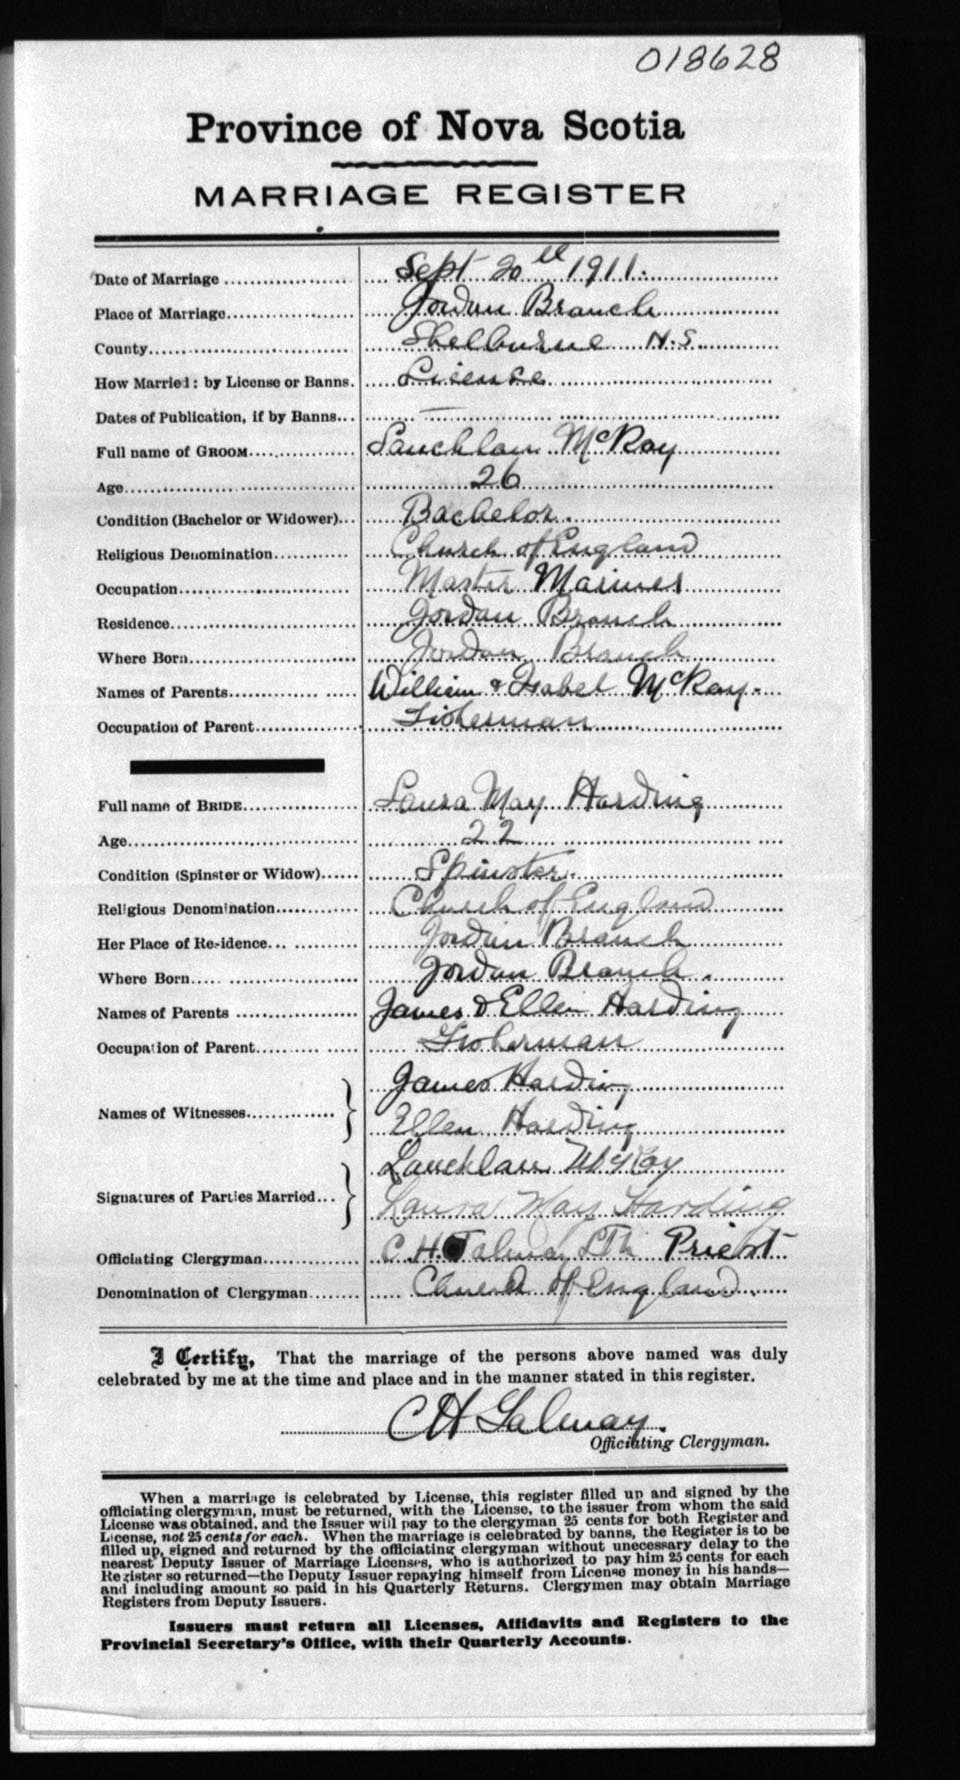 018628
Province of Nova Scotia
MARRIAGE REGISTER
Date of Marriage Sept 20th 1911.
Place of Marriage Jordan Branch
County Shelburne N.S.
How Married: by License or Banns. License
Dates of Publication, if by Banns —
Full name of GROOM Lauchlan McKay
Age 26
Condition (Bachelor or Widower) Bachelor.
Religious Denomination Church of England
Occupation Master Mariner
Residence Jordan Branch
Where Born Jordan Branch
Names of Parents William & Isabel McKay.
Occupation of Parent Fisherman
Full name of BRIDE Laura May Harding
Age 22
Condition (Spinster or Widow) Spinster.
Religious Denomination Church of England
Her Place of Residence Jordan Branch
Where Born Jordan Branch.
Names of Parents James & Ellen Harding
Occupation of Parent Fisherman
Names of Witnesses James Harding
Ellen Harding
Signatures of Parties Married Lauchlan McKay
Laura May Harding
Officiating Clergyman C. H. LTh Priest
Denomination of Clergyman Church of England
I Certify, That the marriage of the persons above named was duly
celebrated by me at the time and place and in the manner stated in this register.
CH
Officiating Clergyman.
When a marriage is celebrated by License, this register filled up and signed by the
officiating clergyman, must be returned, with the License, to the issuer from whom the said
License was obtained, and the Issuer will pay to the clergyman 25 cents for both Register and
License, not 25 cents for each. When the marriage is celebrated by banns, the Register is to be
filled up, signed and returned by the officiating clergyman without unnecessary delay to the
nearest Deputy Issuer of Marriage Licenses, who is authorized to pay him 25 cents for each
Register so returned—the Deputy Issuer repaying himself from License money in his hands—
and including amount so paid in his Quarterly Returns. Clergymen may obtain Marriage
Registers from Deputy Issuers.
Issuers must return all Licenses, Affidavits and Registers to the
Provincial Secretary's Office, with their Quarterly Accounts.